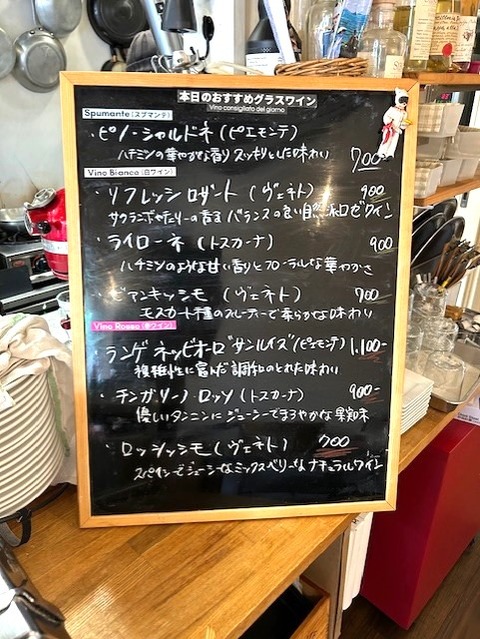 本日のおすすめグラスワイン
Vino consigliato del giorno
Spumante(スプマンテ)
・ピノ・シャルドネ(ピエモンテ)
ハチミツの華やかな香り スッキリとした味わい 700
Vino Bianco(白ワイン)
・リフレッシ ロザート(ヴェネト) 900
サクランボやチェリーの香る バランスの良い自然派ロゼワイン
・ライローネ(トスカーナ) 900
ハチミツのような甘い香りとフローラルな華やかさ
・ビアンキッシモ(ヴェネト) 700
モスカート種のフルーティーで柔らかな味わい
Vino Rosso(赤ワイン)
・ランゲ ネッビオーロ サンルイズ(ピエモンテ) 1,100-
複雑性に富んだ調和のとれた味わい
・チンガリーノ・ロッソ(トスカーナ) 900-
優しいタンニンにジューシーでまろやかな果実味
・ロッシッシモ(ヴェネト) 700
スパイシーでジューシーなミックスベリーなナチュラルワイン